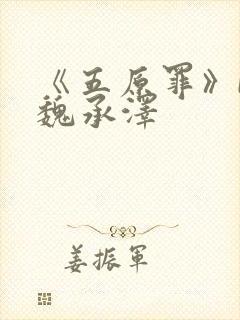 《五原罪》
魏承澤
姜振军